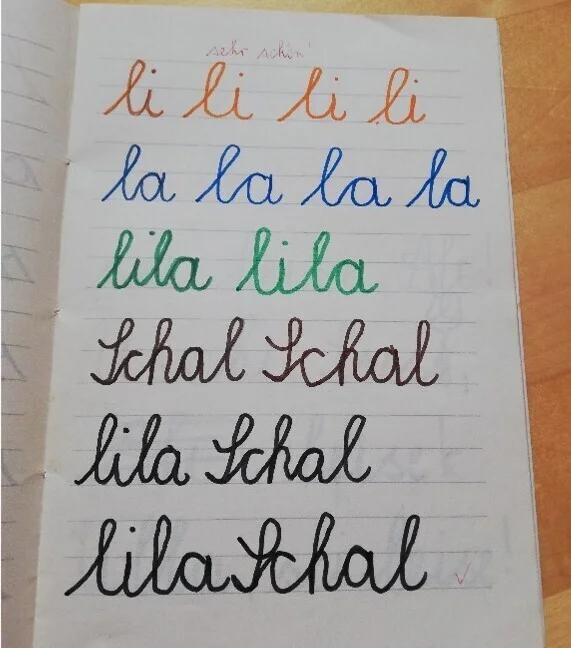 sehr schön!
li li li li
la la la la
lila lila
Schal Schal
lila Schal
lila Schal